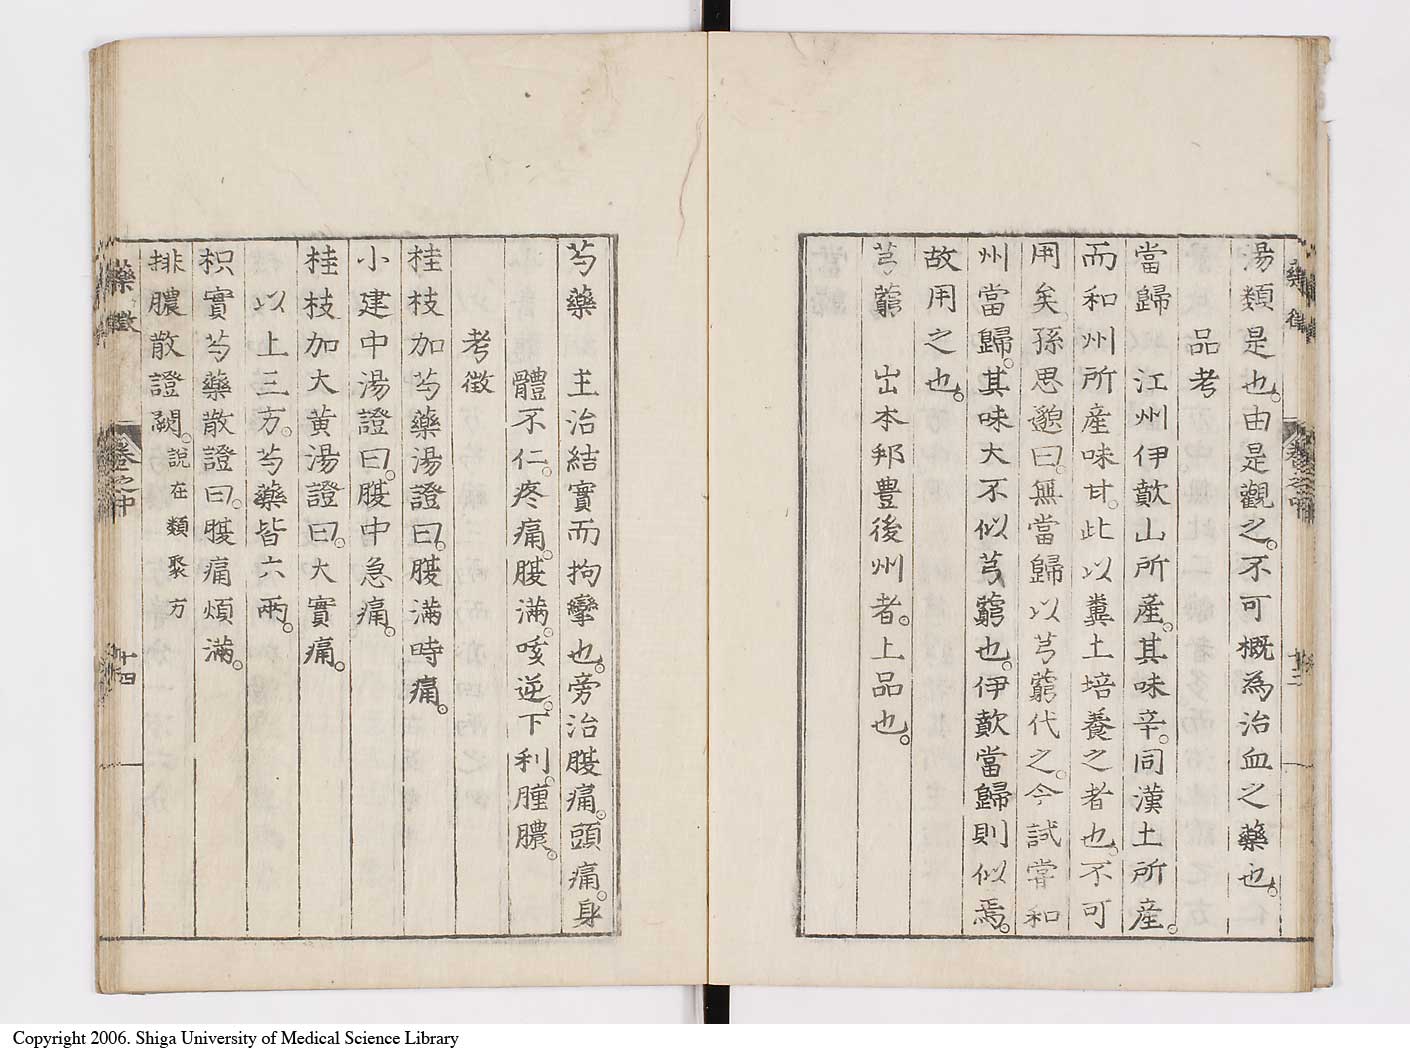 湯類是也。由是觀之。不可概為治血之藥也。
品考
當歸　江州伊歕山所產。其味辛。同漢土所產。
而和州所產味甘。此以糞土培養之者也。不可
用矣。孫思邈曰。無當歸以芎藭代之。今試嘗和
州當歸。其味大不似芎藭也。伊歕當歸則似焉。
故用之也。
芎藭　出本邦豊後州者。上品也。
藥徵
卷之中
芍藥　主治結實而拘攣也。旁治腹痛。頭痛。身
體不仁。疼痛。腹滿。咳逆。下利。腫膿。
考徵
桂枝加芍藥湯證曰。腹滿時痛。
小建中湯證曰。腹中急痛。
桂枝加大黃湯證曰。大實痛。
以上三方。芍藥皆六兩。
枳實芍藥散證曰。腹痛煩滿。
排膿散證闕。說在類聚方
藥徵
卷之中
十四
Copyright 2006. Shiga University of Medical Science Library